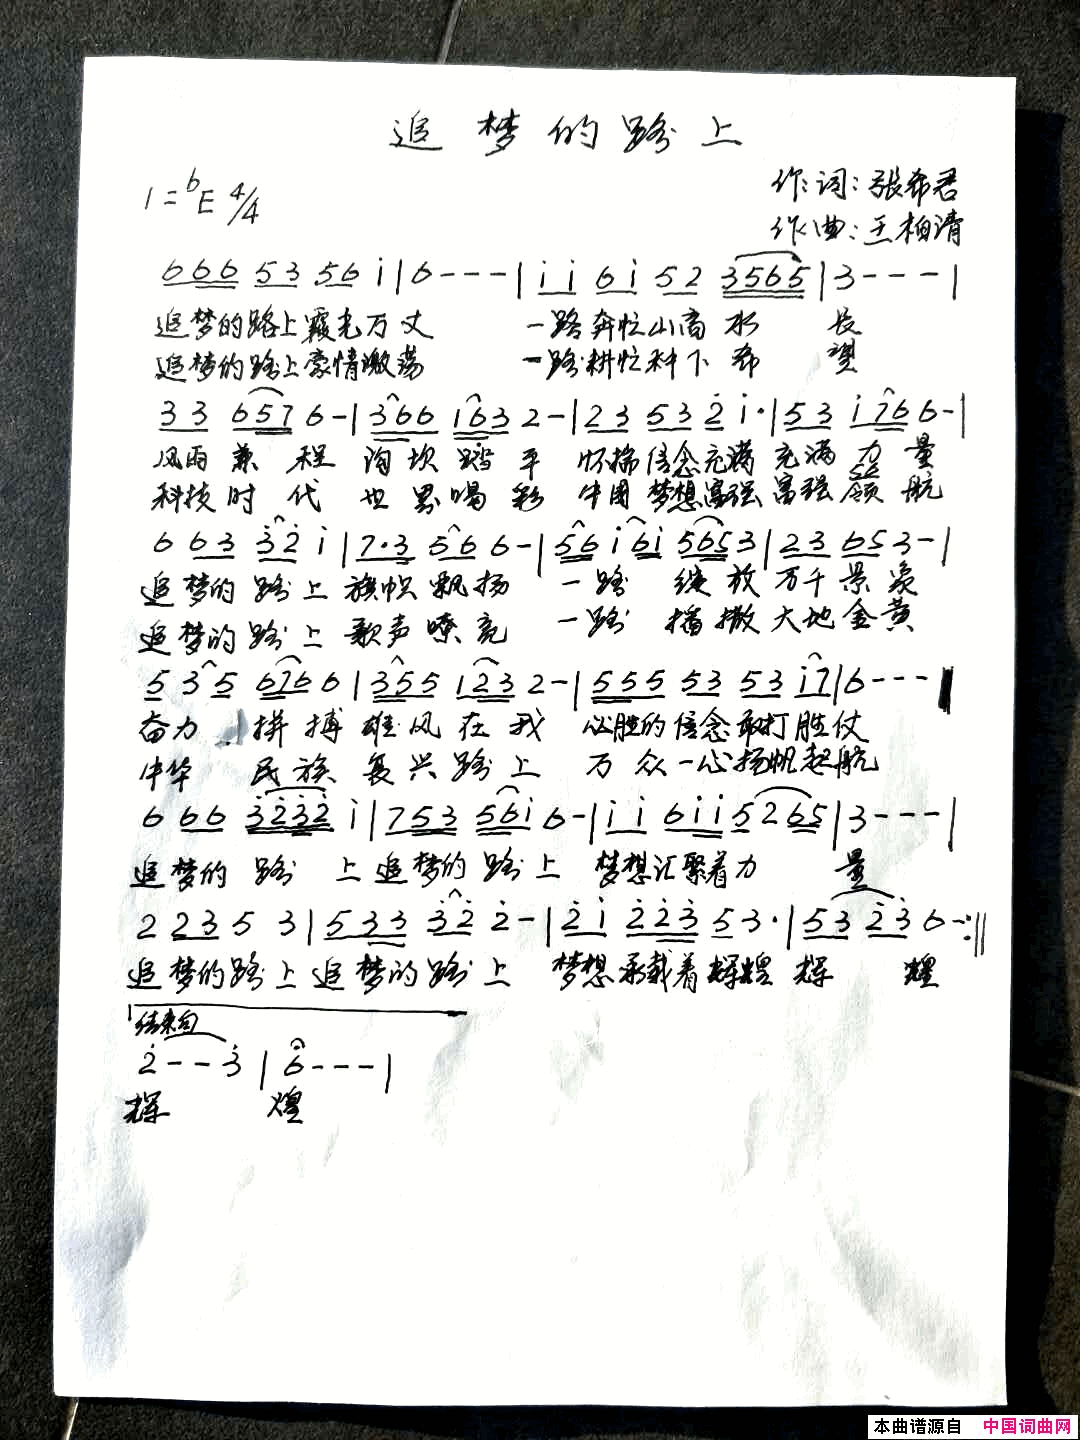 追梦的路上
1=bE 4/4
作词:张希君
作曲:王柏清
666 53 56 i|6---|ii 6i 52 3565|3---|
追梦的路上霞光万丈 一路奔忙山高水长
追梦的路上豪情激荡 一路耕忙种下希望
33 657 6-|366 163 2-|23 53 2̇ i·|53 i76 6-|
风雨兼程沟坎踏平 怀揣信念充满充满力量
56
科技时代世界喝彩 中国梦想富强富强领航
6 63 3̇2̇ i|7·3 56 6-|56 i 6i 565 3|23 65 3-|
追梦的路上旗帜飘扬 一路绽放万千景象
追梦的路上歌声嘹亮 一路播撒大地金黄
5 3 5 676 6|355 123 2-|555 53 53 i7|6---
奋力拼搏雄风在我 必胜的信念敢打胜仗
中华民族复兴路上 万众一心扬帆起航
6 66 3̇2̇3̇2̇ i|753 56i 6-|ii 6ii 5265|3---|
追梦的路上追梦的路上 梦想汇聚着力量
2 23 5 3|533 3̇2̇ 2̇-|2̇i 2̇2̇3̇ 53·|53 2̇3̇ 6-:||
追梦的路上追梦的路上 梦想承载着辉煌辉煌
结束句
2̇--3̇|6---|
辉煌
本曲谱源自 中国词曲网